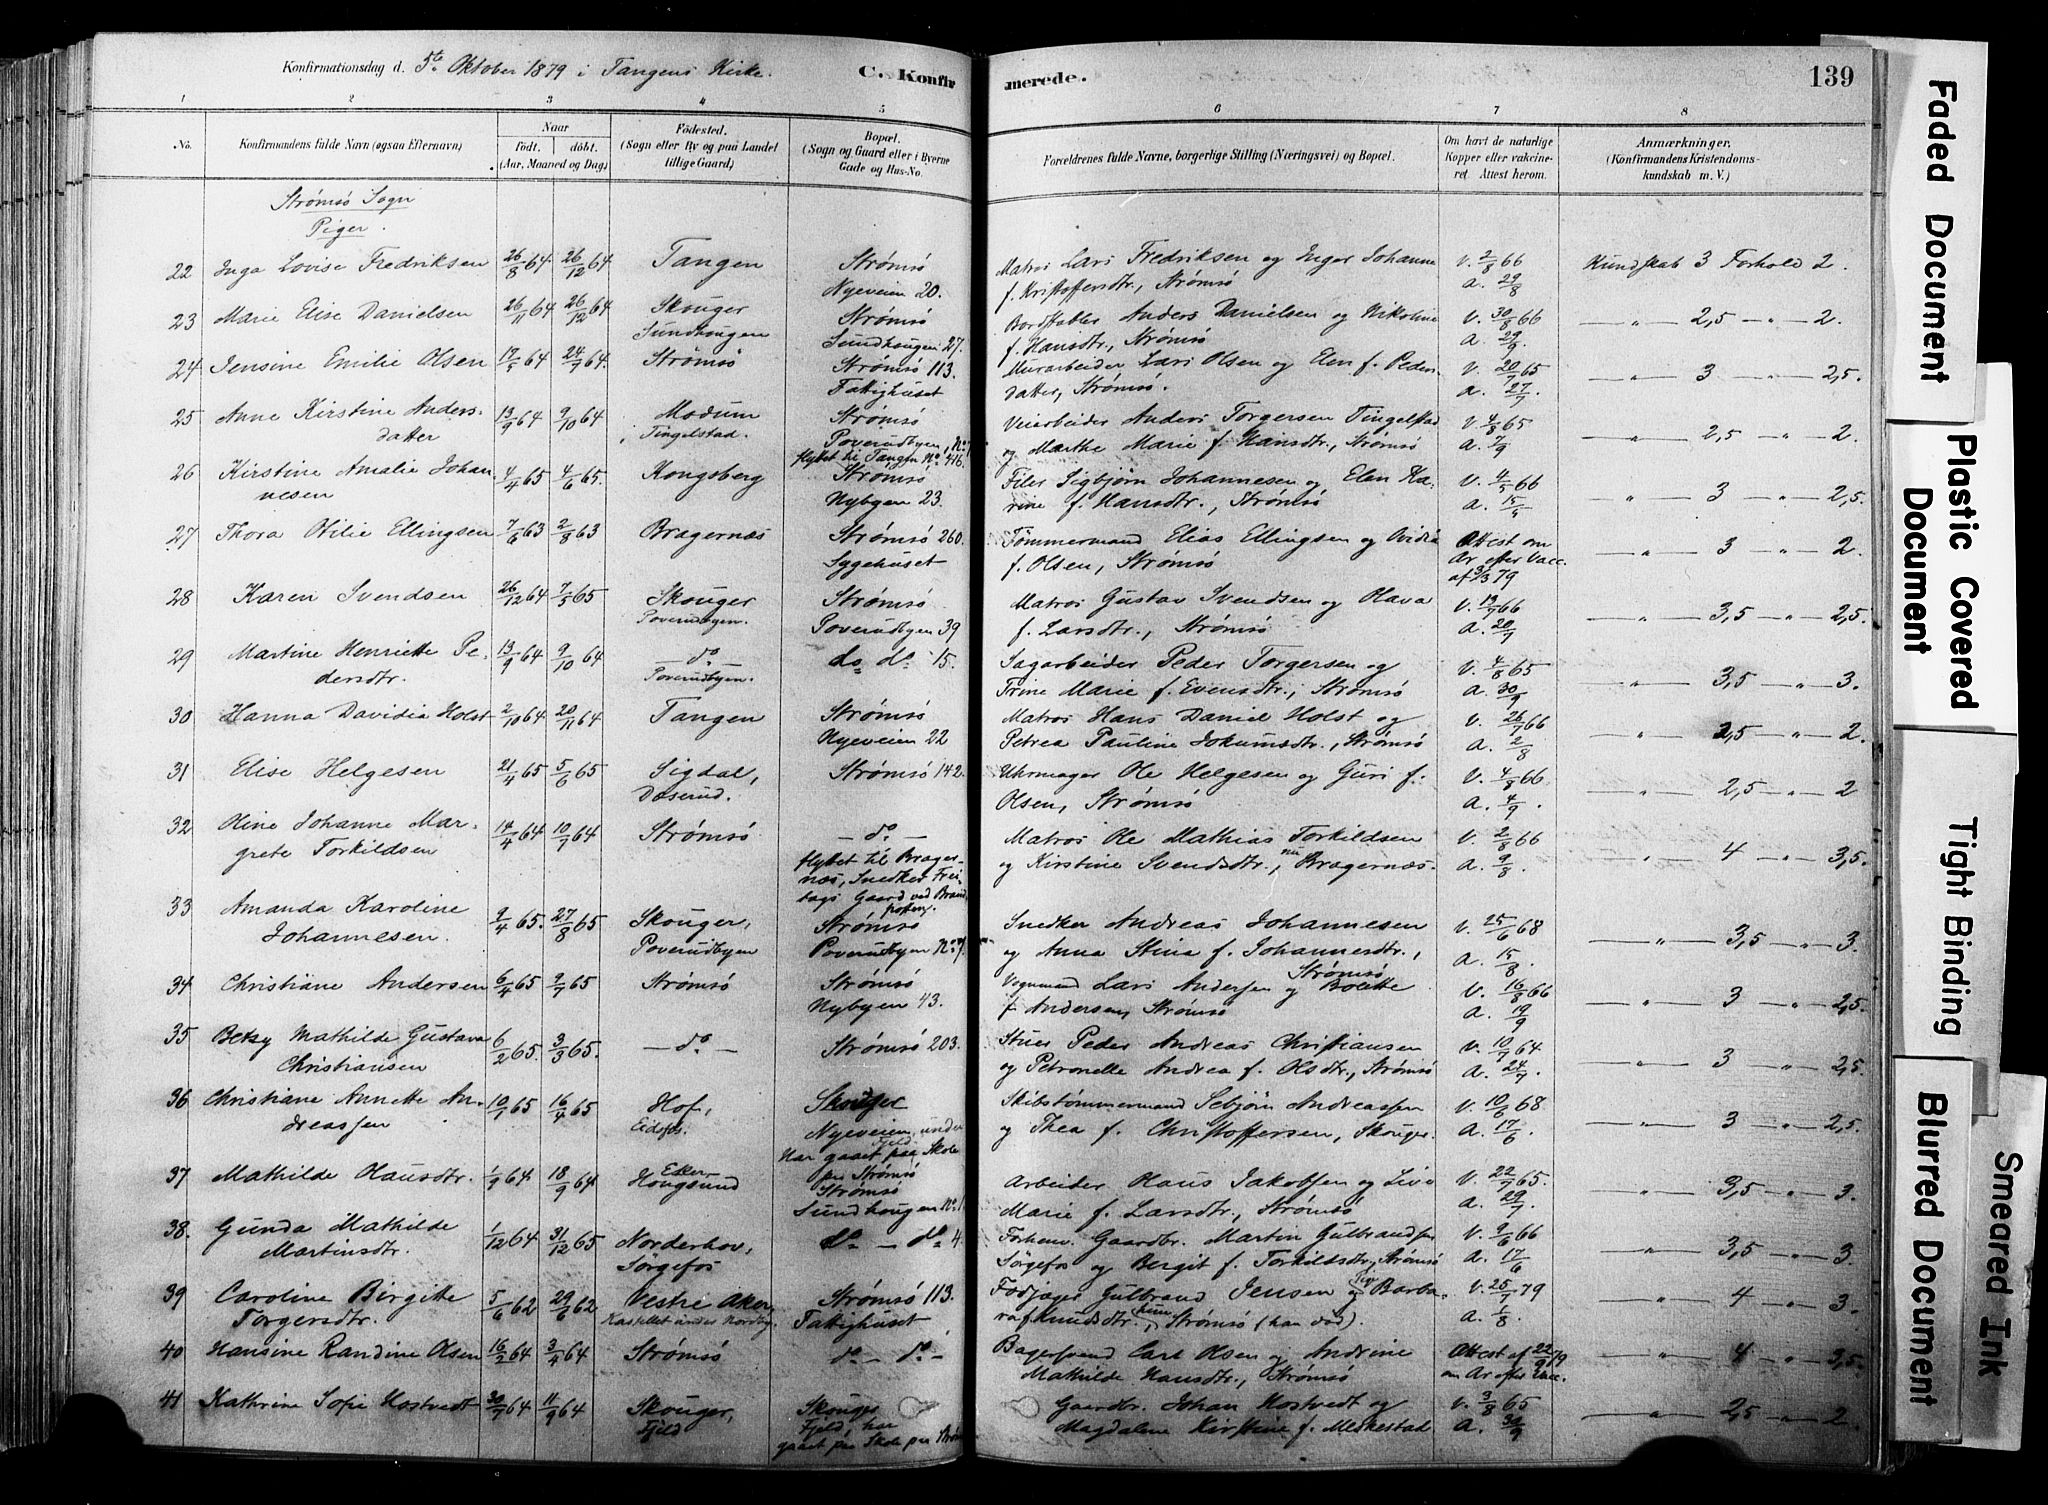 Konfirmationsdag d. 5te Oktober 1879 i Tangens Kirke. C. Konfirmerede. 139
1 2 3 4 5 6 7 8
No. Konfirmandens fulde Navn (ogsaa Efternavn) Naar Født. døbt. (Aar, Maaned og Dag) Fødested. (Sogn eller By og paa Landet tillige Gaard) Bopæl. (Sogn og Gaard eller i Byerne Gade og Hus-No. Forældrenes fulde Navne, borgerlige Stilling (Næringsvei) og Bopæl. Om havt de naturlige Kopper eller vakcineret. Attest herom. Anmærkninger. (Konfirmandens Kristendomskundskab m. V.)
Strømsø Sogn
Piger.
22 Inga Lovise Fredriksen 26/8 64 26/12 64 Tangen Strømsø Matros Lars Fredriksen og Inger Johanne V. 2/8 66 Kundskab 3 Forhold 2.
Nyeveien 20. f. Kristoffersdtr., Strømsø a. 29/8
23 Marie Elise Danielsen 26/11 64 26/12 64 Skouger Strømsø Bordstabler Anders Danielsen og Nikoline V. 30/8 66 — " — 2,5 — " — 2.
Sundhougen Sundhougen 27. f. Hansdtr., Strømsø a. 29/9
24 Jensine Emilie Olsen 17/5 64 24/7 64. Strømsø Strømsø 113. Murarbeider Lars Olsen og Elen f. Peders- V. 20/7 65 — " — 3 — " — 2,5.
Fattighuset datter, Strømsø. a. 27/7
25 Anne Kirstine Anders- 13/9 64 9/10 64 Modum Strømsø Veiarbeider Anders Torgersen Tingelstad V. 4/8 65 — " — 2,5 — " — 2.
datter Tingelstad. Poverudbyen, No. 1 og Marthe Marie f. Hansdtr., Strømsø a. 7/9
flyttet til Tangen No. 416.
26 Kirstine Amalie Johan- 4/4 65 4/6 65. Kongsberg Strømsø Filer Sigbjørn Johannesen og Elen Ka- V. 4/5 66 — " — 3 — " — 2,5.
nesen Nybyen 23. rine f. Hansdtr., Strømsø a. 15/9
27 Thora Otilie Ellingsen 7/6 63 2/8 63 Bragernæs Strømsø 260. Tømmermand Elias Ellingsen og Ovidia Attest om — " — 3 — " — 2.
Sygehuset f. Olsen, Strømsø Ar efter Vacc.
af 3/3 79
28 Karen Svendsen 26/12 64 7/5 65 Skouger Strømsø Matros Gustav Svendsen og Olava V. 13/7 66 — " — 3,5 — " — 2,5.
Poverudbyen. Poverudbyen 39 f. Larsdtr., Strømsø a. 20/7
29 Martine Henriette Pe- 13/9 64 9/10 64 — do — do do 15. Sagarbeider Peder Torgersen og V. 4/8 65 — " — 3,5 — " — 3.
dersdtr. Poverudbyen. Trine Marie f. Evensdtr., Strømsø a. 30/9
30 Hanna Davidia Holst 2/10 64 20/11 64 Tangen Strømsø Matros Hans Daniel Holst og V. 26/7 66 — " — 2,5 — " — 2.
Nyeveien 22 Petrea Pauline Jokumsdtr., Strømsø a. 2/8
31 Elise Helgesen 21/4 65 5/6 65 Sigdal, Strømsø 142. Uhrmager Ole Helgesen og Guri f. V. 4/8 66 — " — 2,5 — " — 2
Daserud. Olsen, Strømsø a. 4/9.
32 Oline Johanne Mar- 14/4 64 10/7 64 Strømsø — do — Matros Ole Mathias Torkildsen V. 2/8 66 " — 4 — " — 3,5.
grete Torkildsen flyttet til Brager- og Kirstine Svendsdtr., nu Bragernæs. a. 9/8
næs, Snedker Frei-
tags Gaard ved Brand
posten.
33 Amanda Karoline 9/4 65. 27/8 65 Skouger, Strømsø Snedker Andreas Johannesen V. 25/6 68 — " — 3,5 — " — 3.
Johannesen. Poverudbyen Poverudbyen No. 7. og Anna Stina f. Johannesdtr., a. 15/8
Strømsø
34 Christiane Andersen 6/4 65 9/7 65 Strømsø Strømsø Vognmand Lars Andersen og Bolette V. 16/8 66 — " — 3 — " — 2,5.
Nybyen 43. f Andersen, Strømsø a. 19/9
35 Betsy Mathilde Gustava 6/2 65. 3/3 65. — do — Strømsø 203. Stuer Peder Andreas Christiansen V. 10/7 64 — " — 3 — " — 2,5.
Christiansen og Petronelle Andrea f. Olsdtr., Strømsø a. 24/7
36 Christiane Annette An- 10/1 65 16/4 65 Hof, Skouger Skibstømmermand Sebjørn Andreassen V. 10/6 68 — " — 3 — " — 2,5.
dreassen Eidsfos. Nyeveien, under Fjeld og Thea f. Christoffersen, Skouger. a. 17/6
Har gaaet paa Skole
paa Strømsø
37 Mathilde Hansdtr. 1/9 64 18/9 64 Eker Hougsund Strømsø Arbeider Hans Jakobsen og Live V. 22/7 65. — " — 3,5 — " — 3.
Sundhougen No. 1 Marie f. Larsdtr., Strømsø a. 29/7
38. Gunda Mathilde 1/12 64 31/12 65 Norderhov, do — do 4. Forhen. Gaardbr. Martin Gulbrandsen V. 9/6 66 — " — 3,5 — " — 3.
Martinsdtr. Sørgefos Sørgefos og Bergit f. Torkildsdtr., Strømsø a. 17/6
39 Caroline Birgitte 5/6 62 29/6 62 Vestre Aker Strømsø 113. Gulbrand Jensen og Barba- V. 25/7 79 " — 4 — " — 3.
Torgersdtr. Kastellet under Nordby. Fattighuset ra f. Knudsdtr., Strømsø (han død). a. 1/8
40 Hansine Randine Olsen 16/2 64 3/4 64 Strømsø do — do — Bagersvend Carl Olsen og Andrine Attest af 22/9 79 " — 4 — " — 3,5.
Mathilde Hansdtr., Strømsø om Ar efter Vacc.
41 Kathrine Sofie Hostvedt 30/7 64 11/9 64 Skouger, Skouger Gaardbr. Johan Hostvedt og V. 3/8 65 — " — 2,5 — " — 2.
Fjeld Fjeld, har Magdalene Kirstine f. Meskestad a. 30/9
gaaet paa Skole paa Strømsø
Faded Document
Plastic Covered Document
Tight Binding
Blurred Document
Smeared Ink